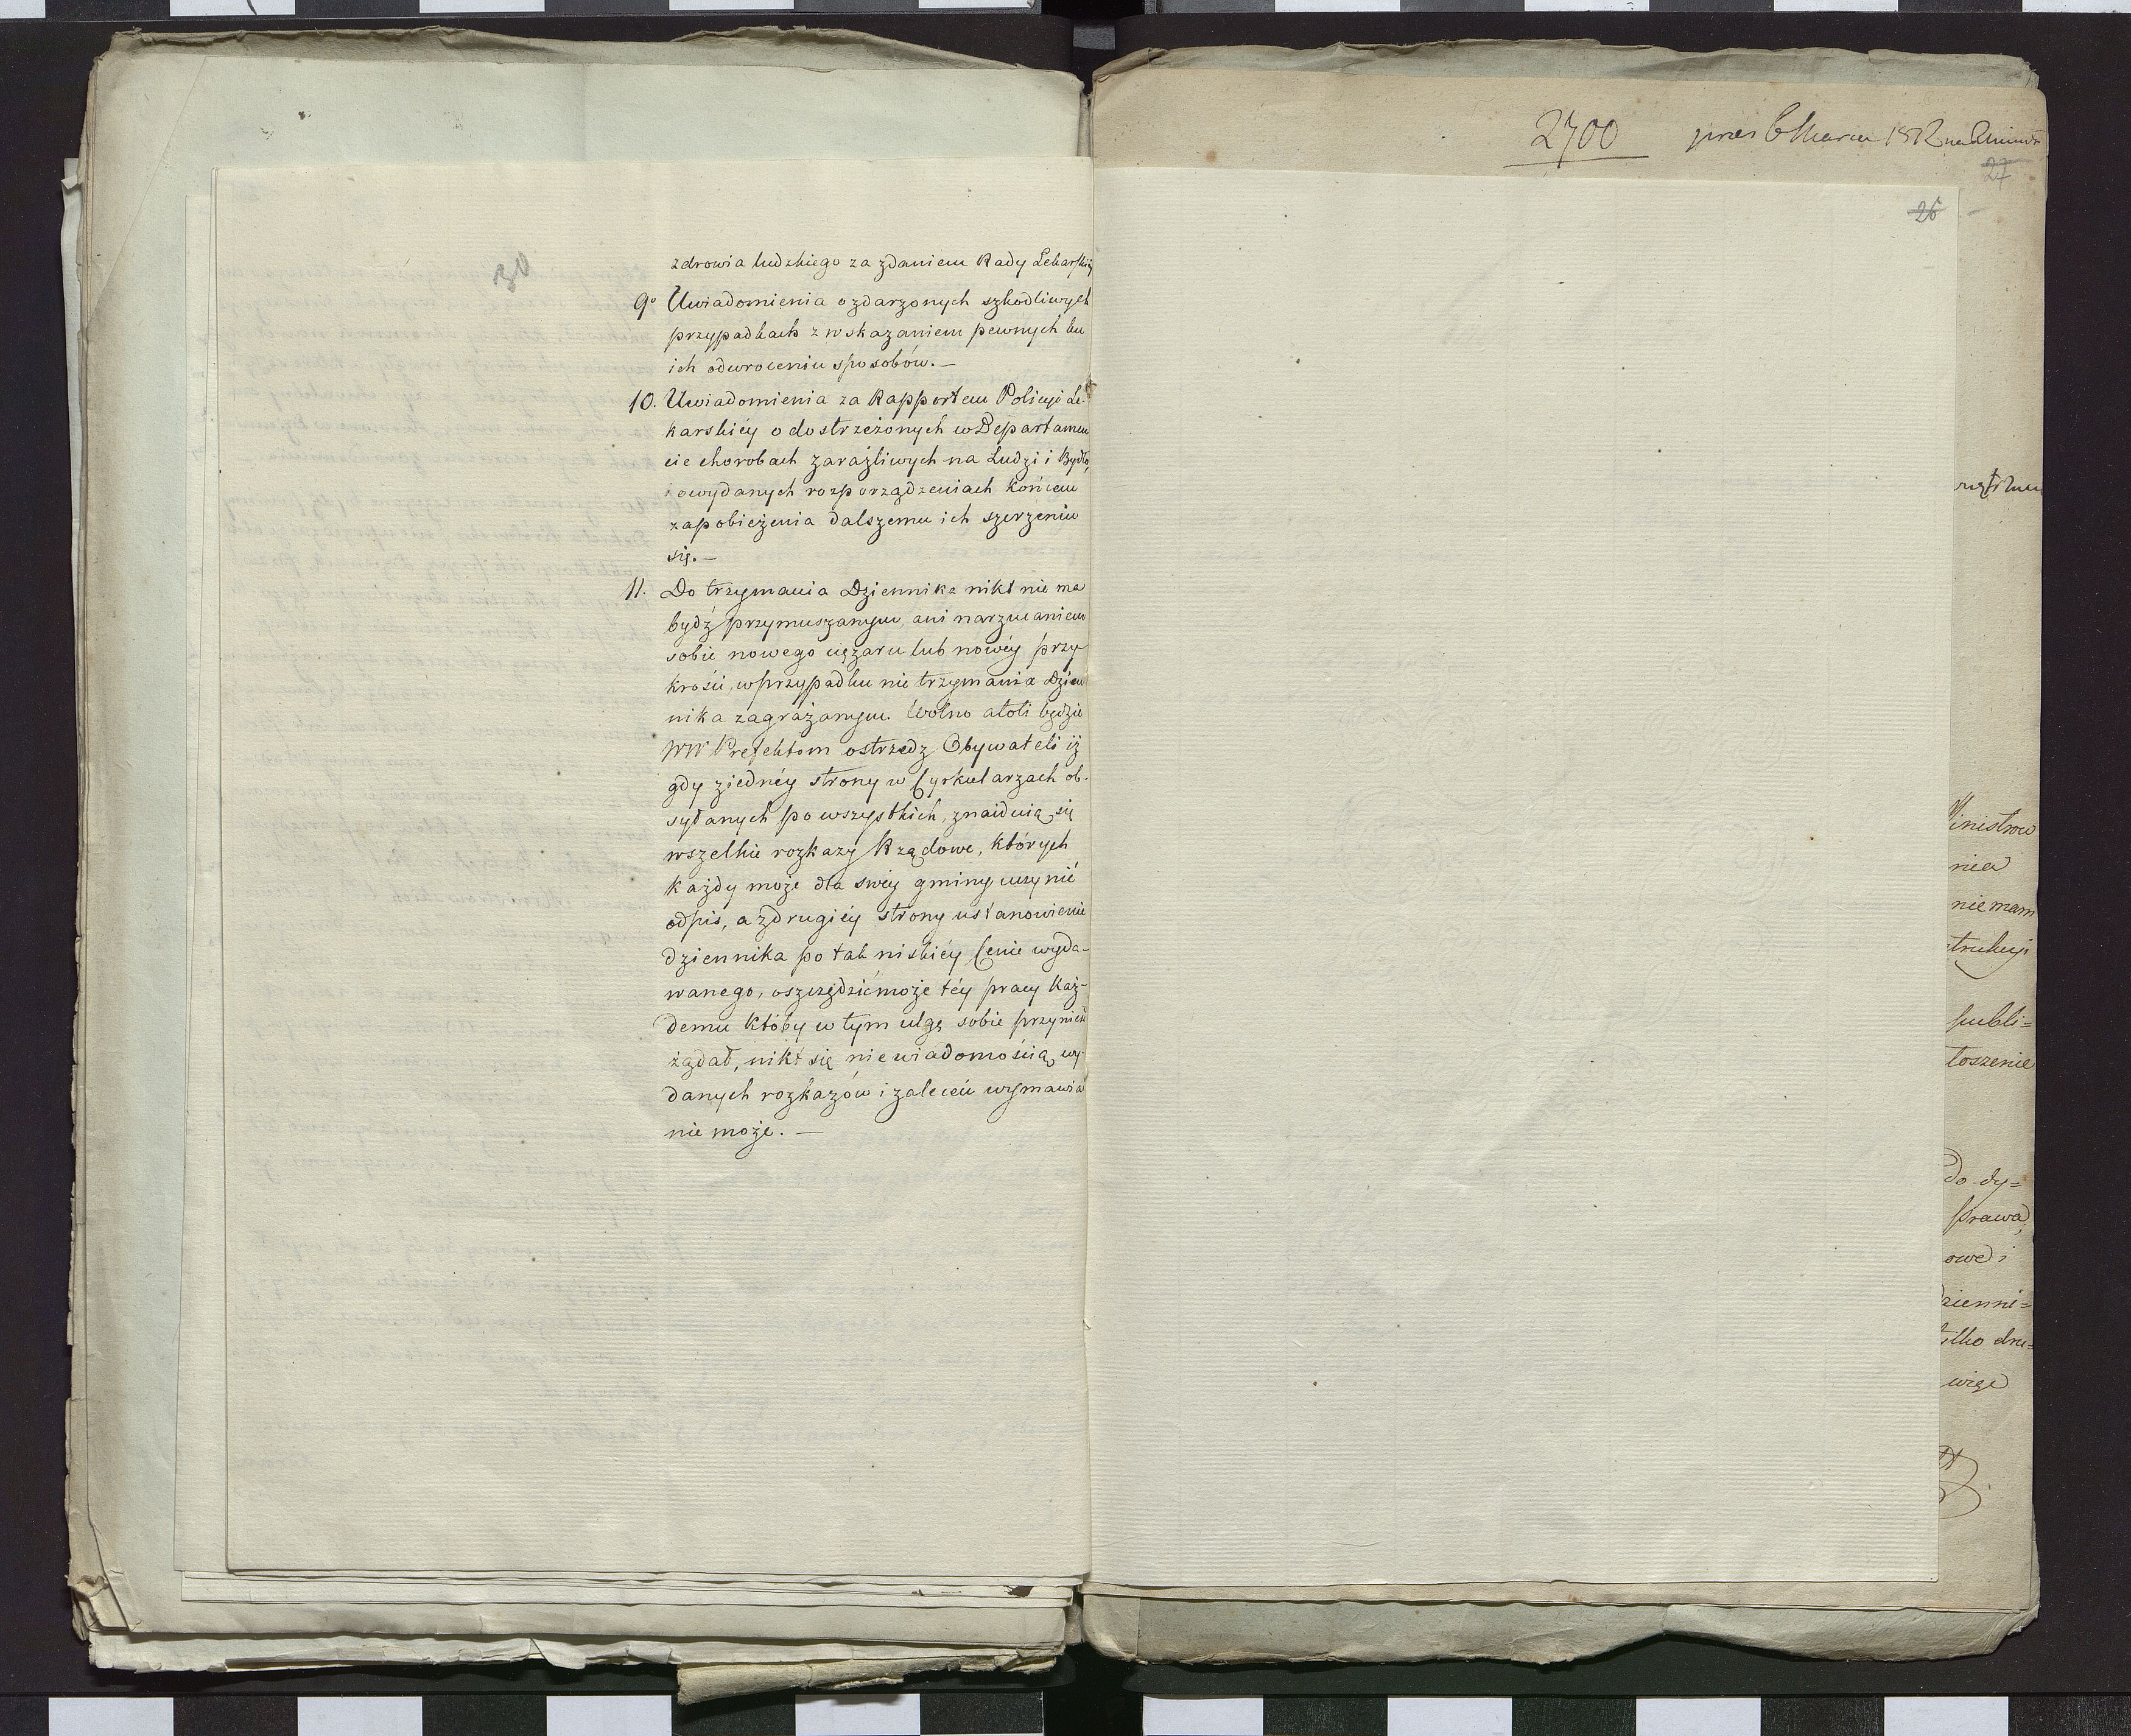 zdrowia ludzkiego za zdaniem Rady Lekarskiéy
9° Uwiadomienia o zdarzonych szkodliwych
przypadkach z wskazaniem pewnych ku
ich odwroceniu sposobów. —
10. Uwiadomienia za Rapportem Policyi Le-
karskiéy o dostrzeżonych w Departamen
cie chorobach zaraźliwych na Ludzi i Bydło,
i o wydanych rozporządzeniach końcem
zapobieżenia dalszemu ich szerzeniu
się. —
11. Do trzymania Dziennika nikt nie ma
bydź przymuszanym, ani narzucaniem
sobie nowego ciężaru lub nowéy przy-
krości, w przypadku nie trzymania Dzien
nika zagrażanym. Wolno atoli będzie
WW Prefektom ostrzedz Obywateli iż
gdy z iednéy strony w Cyrkularzach ob-
syłanych po wszystkich, znaiduią się
wszelkie rozkazy Rządowe, których
każdy może dla swéy gminy uczynić
odpis, a z drugiéy strony ustanowienie
dziennika po tak niskiéy Cenie wyda-
wanego, oszczędzić może téy pracy każ-
demu któby w tym ulgę sobie przynieść
żądał, nikt się niewiadomością wy-
danych rozkazów i zaleceń wymawiać
nie może. —
30
2700 1812
27
26
Ministrow
nia
niemam
strukcyi
publi=
łoszenie
do dy=
prawa,
owe i
Dzienni=
tylko dru=
więc